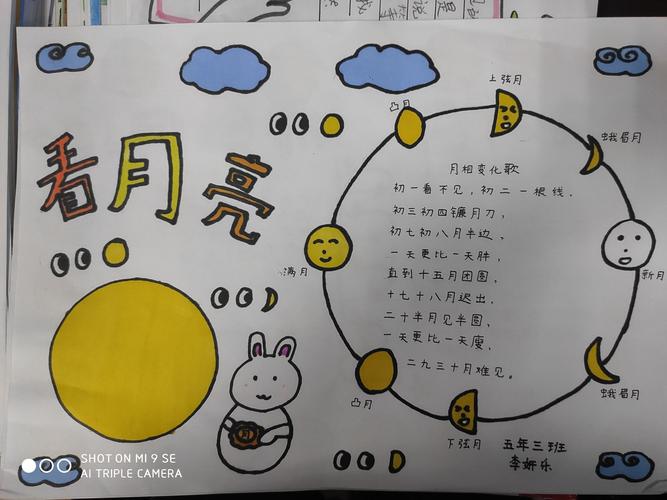 看月亮
凸月
上弦月
蛾眉月
新月
蛾眉月
下弦月
凸月
满月
月相变化歌
初一看不见,初二一根线.
初三初四镰月刀,
初七初八月半边、
一天更比一天胖,
直到十五月团圆、
十七十八月迟出、
二十半月见半圆、
一天更比一天廋、
二九三十月难见。
五年三班
李妍乐
SHOT ON MI 9 SE
AI TRIPLE CAMERA